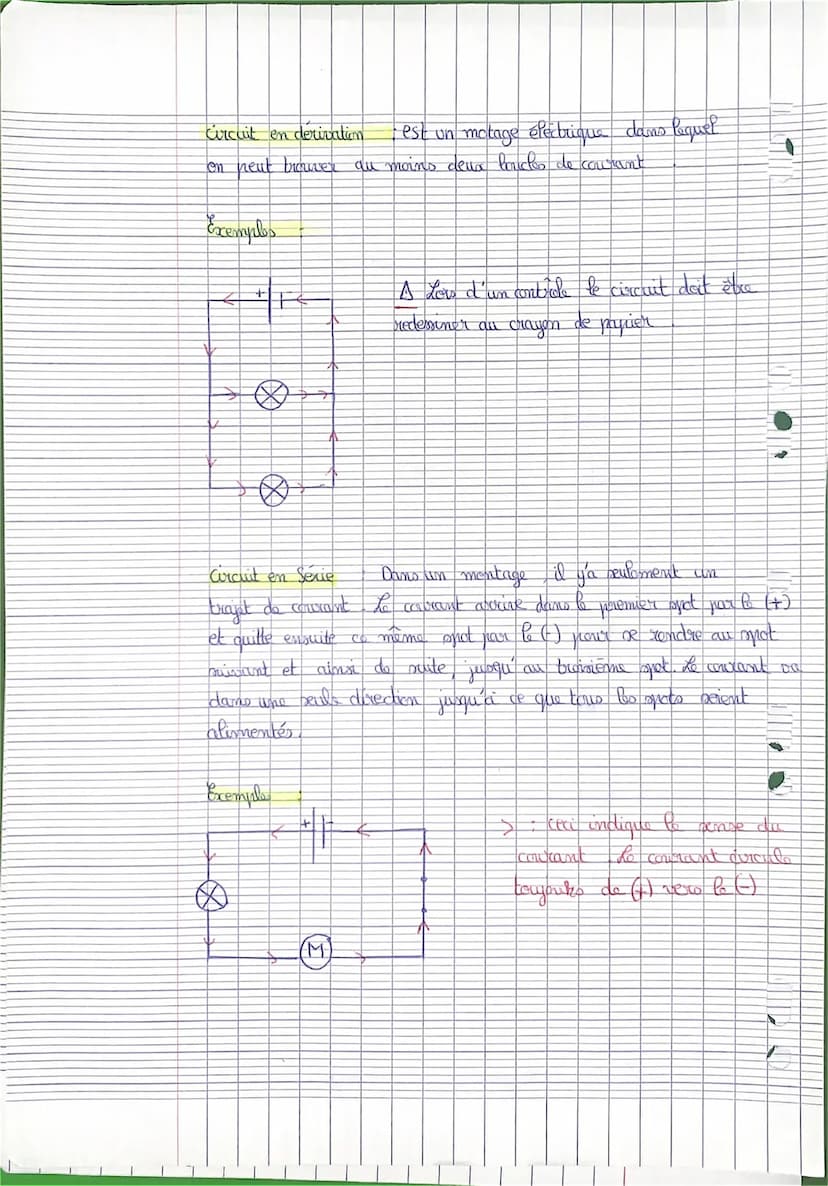 Circuit en dérivation : est un motage électrique dans lequel
on peut trouver au moins deux boucles de courant .
Exemples :
+
⚠ Lors d'un contrôle le circuit doit être
redessiner au crayon de papier .
Circuit en Série : Dans un montage , il y'a seulement un
trajet de courant . Le courant arrive dans le premier spot par le (+)
et quitte ensuite ce même spot par le (-) pour se rendre au spot
suivant et ainsi de suite, jusqu'au troisième spot. Le courant va
dans une seule direction jusqu'à ce que tous les spots soient
alimentés.
Exemple :
+ -
> : ceci indique le sense du
courant . Le courant circule
toujours de (+) vers le (-)
M